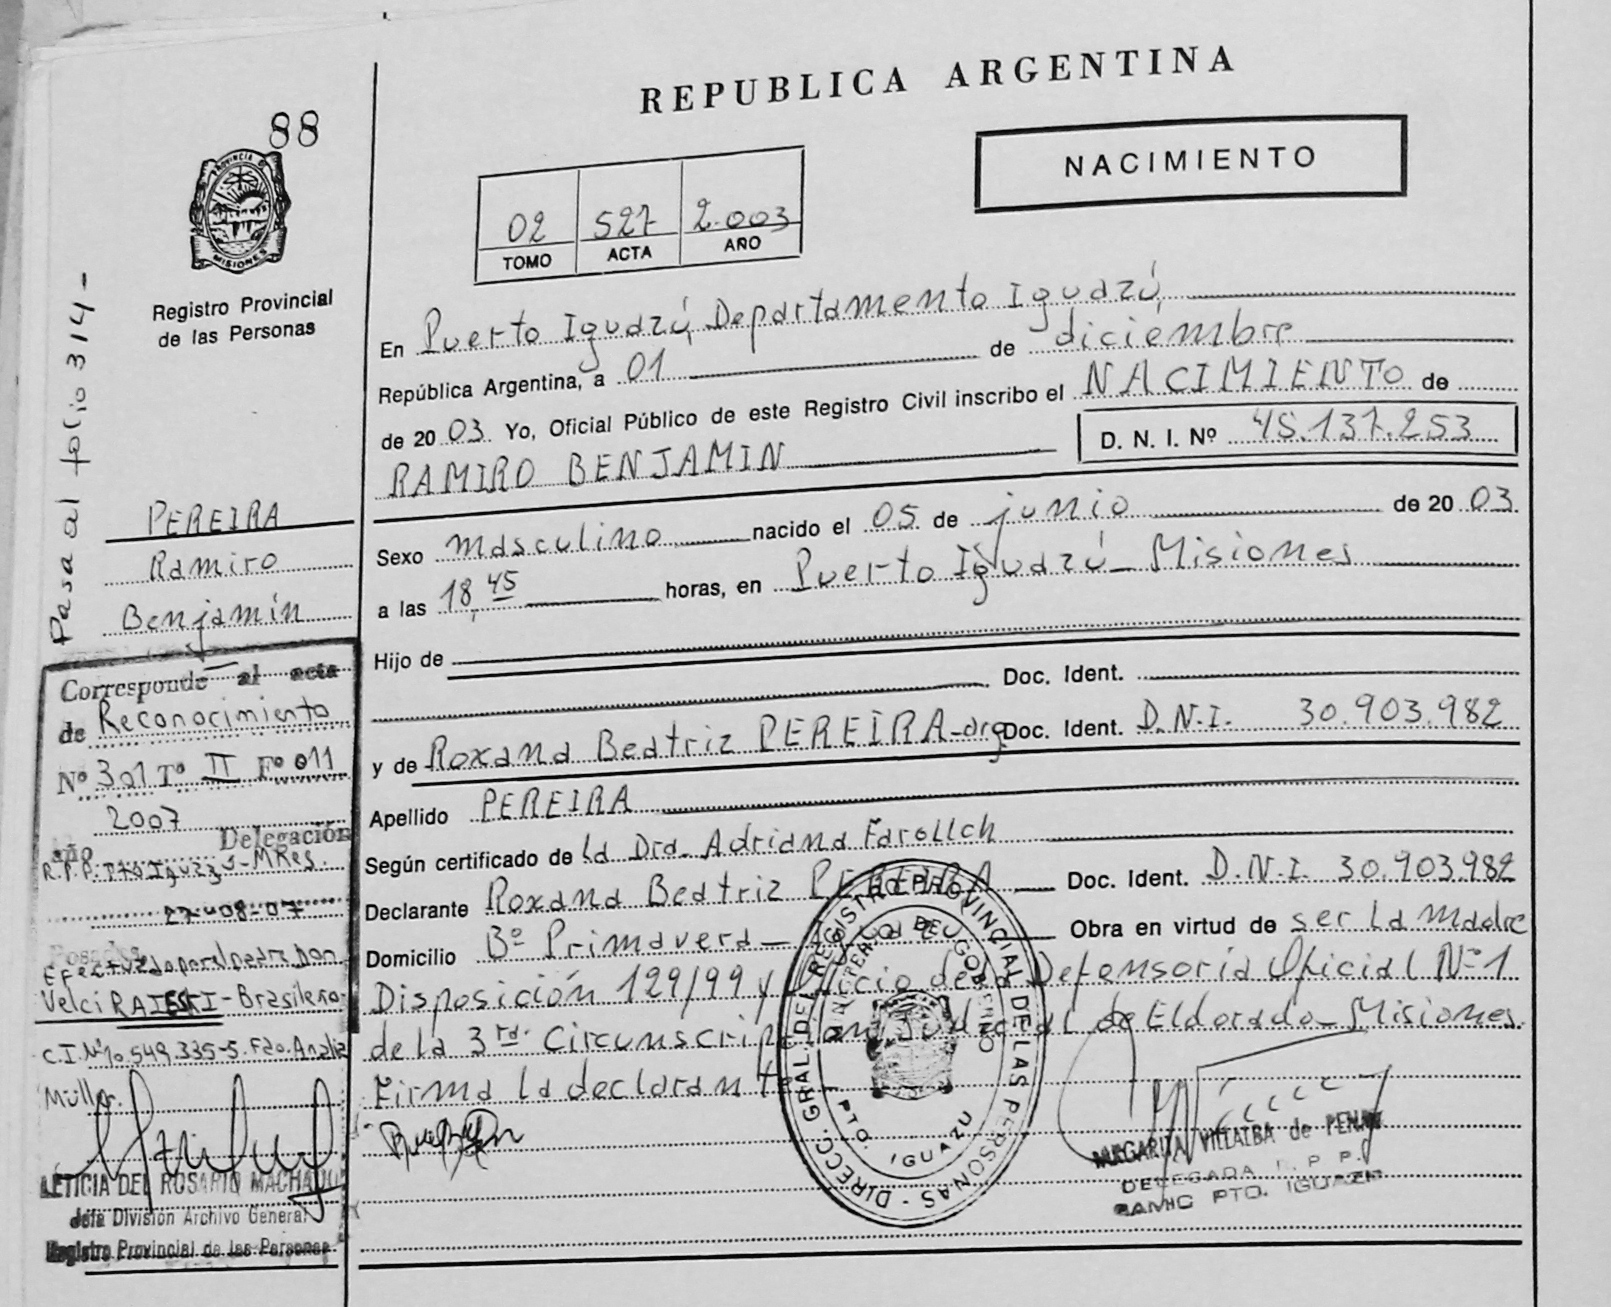 REPUBLICA ARGENTINA
88
NACIMIENTO
PROVINCIA D
MISIONES
Registro Provincial
de las Personas
02 527 2.003
TOMO ACTA AÑO
Pasa al folio 314-
En Puerto Iguazú, Departamento Iguazú
República Argentina, a 01 de diciembre
de 20 03. Yo, Oficial Público de este Registro Civil inscribo el NACIMIENTO de
RAMIRO BENJAMIN D. N. I. Nº 45.137.253
PEREIRA
Ramiro
Benjamín
Sexo masculino nacido el 05 de junio de 20 03
a las 18,45 horas, en Puerto Iguazú - Misiones
Hijo de
Doc. Ident.
y de Roxana Beatriz PEREIRA-arg Doc. Ident. D.N.I. 30.903.982
Apellido PEREIRA
Según certificado de la Dra. Adriana
Declarante Roxana Beatriz PEREIRA Doc. Ident. D.N.I. 30.903.982
Domicilio Bº Primavera - Obra en virtud de ser la madre
Disposición 129/99 y Oficio de la Defensoría Oficial Nº 1
de la 3ra Circunscripción Judicial de Eldorado - Misiones.
Firma la declarante
Corresponde al acta
de Reconocimiento
Nº 301 Tº II Fº 011
2007
año Delegación
R.P.P. Pto Iguazú - Mnes.
27-08-07
Efectuado por el padre Don
Velci - Brasileño-
C.I. Nº 10.549.335-5. Fdo. Analia
Müller.
LETICIA DEL ROSARIO MACHADO
Jefa División Archivo General
Registro Provincial de las Personas
DIRECC. GRAL. DEL REGISTRO PROVINCIAL DE LAS PERSONAS -
MINISTERIO DE GOBIERNO
PTO. IGUAZU
MARGARITA VILLALBA de PENAY
DELEGADA R. P. P.
SAMIC PTO. IGUAZU